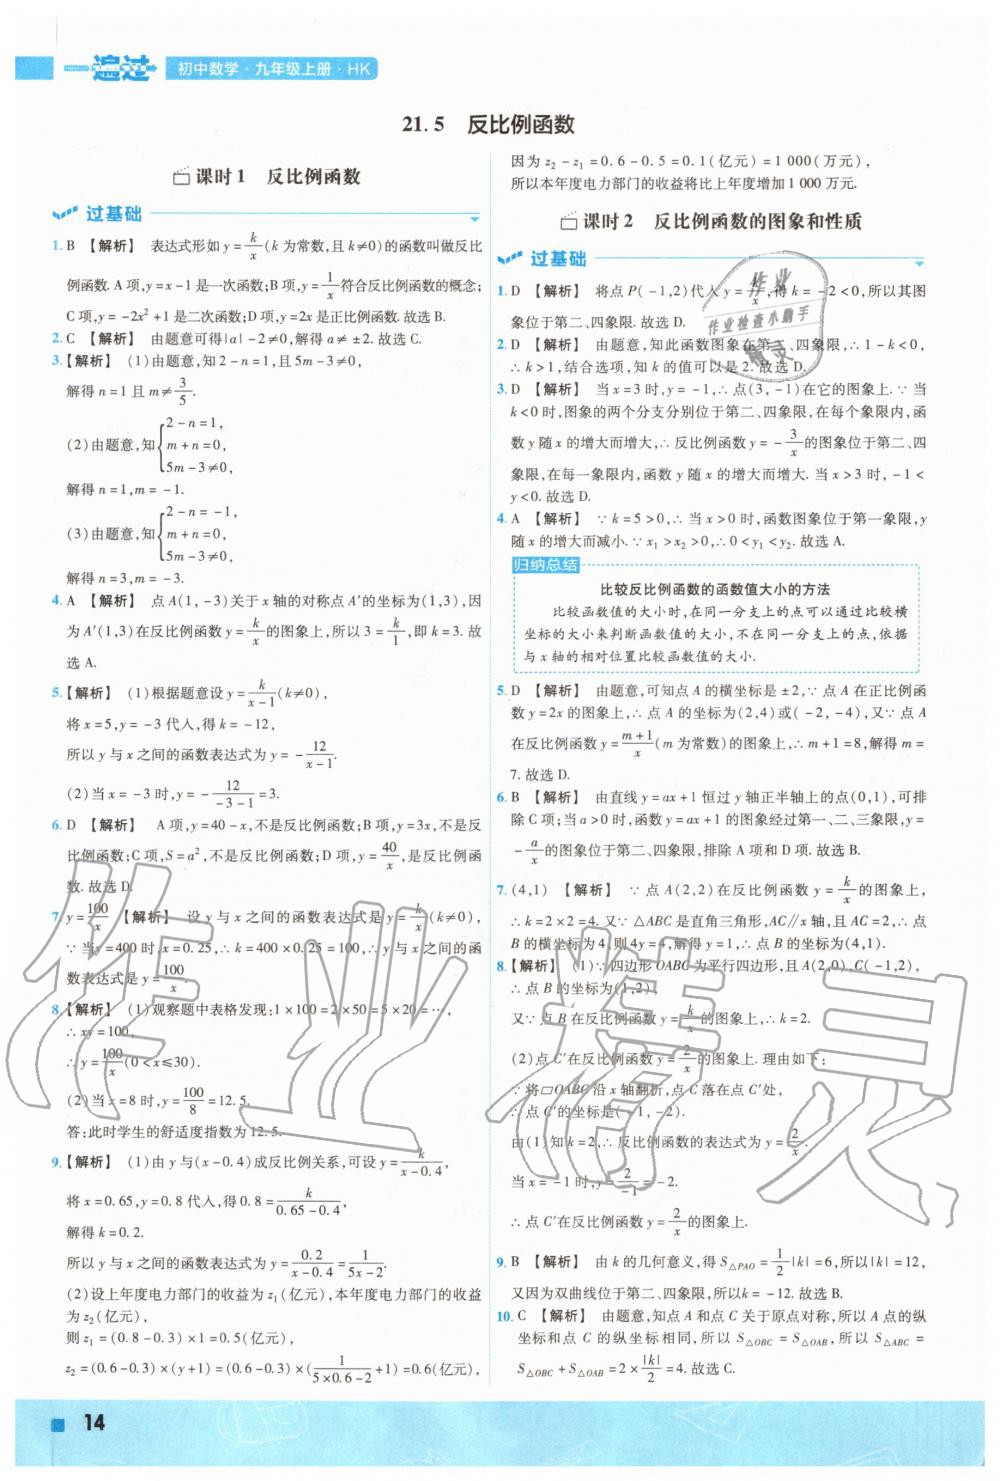 一遍过 初中数学·九年级上册·HK
21.5 反比例函数
课时1 反比例函数
过基础
1. B 【解析】 表达式形如y=k/x(k为常数,且k≠0)的函数叫做反比
例函数. A项,y=x-1是一次函数;B项,y=1/x符合反比例函数的概念;
C项,y=-2x²+1是二次函数;D项,y=2x是正比例函数. 故选B.
2. C 【解析】 由题意可得|a|-2≠0,解得a≠±2. 故选C.
3.【解析】 (1)由题意,知2-n=1,且5m-3≠0,
解得n=1且m≠3/5.
(2)由题意,知{2-n=1,
m+n=0,
5m-3≠0,
解得n=1,m=-1.
(3)由题意,知{2-n=-1,
m+n=0,
5m-3≠0,
解得n=3,m=-3.
4. A 【解析】 点A(1,-3)关于x轴的对称点A'的坐标为(1,3),因
为A'(1,3)在反比例函数y=k/x的图象上,所以3=k/1,即k=3. 故
选A.
5.【解析】 (1)根据题意设y=k/(x-1)(k≠0),
将x=5,y=-3代入,得k=-12,
所以y与x之间的函数表达式为y=-12/(x-1).
(2)当x=-3时,y=-12/(-3-1)=3.
6. D 【解析】 A项,y=40-x,不是反比例函数;B项,y=3x,不是反
比例函数;C项,S=a²,不是反比例函数;D项,y=40/x,是反比例函
数. 故选D.
7. y=100/x 【解析】 设y与x之间的函数表达式是y=k/x(k≠0),
∵当y=400时,x=0.25,∴k=400×0.25=100,∴y与x之间的函
数表达式是y=100/x.
8.【解析】 (1)观察题中表格发现:1×100=2×50=5×20=…,
∴xy=100,
∴y=100/x(0<x≤30).
(2)当x=8时,y=100/8=12.5.
答:此时学生的舒适度指数为12.5.
9.【解析】 (1)由y与(x-0.4)成反比例关系,可设y=k/(x-0.4),
将x=0.65,y=0.8代入,得0.8=k/(0.65-0.4),
解得k=0.2.
所以y与x之间的函数表达式为y=0.2/(x-0.4)=1/(5x-2).
(2)设上年度电力部门的收益为z₁(亿元),本年度电力部门的收益
为z₂(亿元),
则z₁=(0.8-0.3)×1=0.5(亿元),
z₂=(0.6-0.3)×(y+1)=(0.6-0.3)×(1/(5×0.6-2)+1)=0.6(亿元),
因为z₂-z₁=0.6-0.5=0.1(亿元)=1 000(万元),
所以本年度电力部门的收益将比上年度增加1 000万元.
课时2 反比例函数的图象和性质
过基础
1. D 【解析】 将点P(-1,2)代入y=k/x,得k=-2<0,所以其图
象位于第二、四象限. 故选D.
2. D 【解析】 由题意,知此函数图象在第二、四象限,∴1-k<0,
∴k>1,结合选项,知k的值可以是2. 故选D.
3. D 【解析】 当x=3时,y=-1,∴点(3,-1)在它的图象上. ∵当
k<0时,图象的两个分支分别位于第二、四象限,在每个象限内,函
数y随x的增大而增大,∴反比例函数y=-3/x的图象位于第二、四
象限,在每一象限内,函数y随x的增大而增大. 当x>3时,-1<
y<0. 故选D.
4. A 【解析】 ∵k=5>0,∴当x>0时,函数图象位于第一象限,y
随x的增大而减小. ∵x₁>x₂>0,∴0<y₁<y₂. 故选A.
归纳总结
比较反比例函数的函数值大小的方法
比较函数值的大小时,在同一分支上的点可以通过比较横
坐标的大小来判断函数值的大小,不在同一分支上的点,依据
与x轴的相对位置比较函数值的大小.
5. D 【解析】 由题意,可知点A的横坐标是±2,∵点A在正比例函
数y=2x的图象上,∴点A的坐标为(2,4)或(-2,-4),又∵点A
在反比例函数y=(m+1)/x(m为常数)的图象上,∴m+1=8,解得m=
7. 故选D.
6. B 【解析】 由直线y=ax+1恒过y轴正半轴上的点(0,1),可排
除C项;当a>0时,函数y=ax+1的图象经过第一、二、三象限,y=
-a/x的图象位于第二、四象限,排除A项和D项. 故选B.
7. (4,1) 【解析】 ∵点A(2,2)在反比例函数y=k/x的图象上,
∴k=2×2=4. 又∵△ABC是直角三角形,AC∥x轴,且AC=2,∴点
B的横坐标为4,则4y=4,解得y=1,∴点B的坐标为(4,1).
8.【解析】 (1)∵四边形OABC为平行四边形,且A(2,0),C(-1,2),
∴点B的坐标为(1,2),
又∵点B在反比例函数y=k/x的图象上,∴k=2.
(2)点C'在反比例函数y=2/x的图象上. 理由如下:
∵将▱OABC沿x轴翻折,点C落在点C'处,
∴点C'的坐标是(-1,-2).
由(1)知k=2,∴反比例函数的表达式为y=2/x.
当x=-1时,y=2/-1=-2.
∴点C'在反比例函数y=2/x的图象上.
9. B 【解析】 由k的几何意义,得S△PAO=1/2|k|=6,所以|k|=12,
又因为双曲线位于第二、四象限,所以k=-12. 故选B.
10. C 【解析】 由题意,知点A和点C关于原点对称,所以A点的纵
坐标和点C的纵坐标相同,所以S△OBC=S△OAB,所以S△ABC=
S△OBC+S△OAB=2×|k|/2=4. 故选C.
14
作业
作业检查小助手
精灵
作业精灵